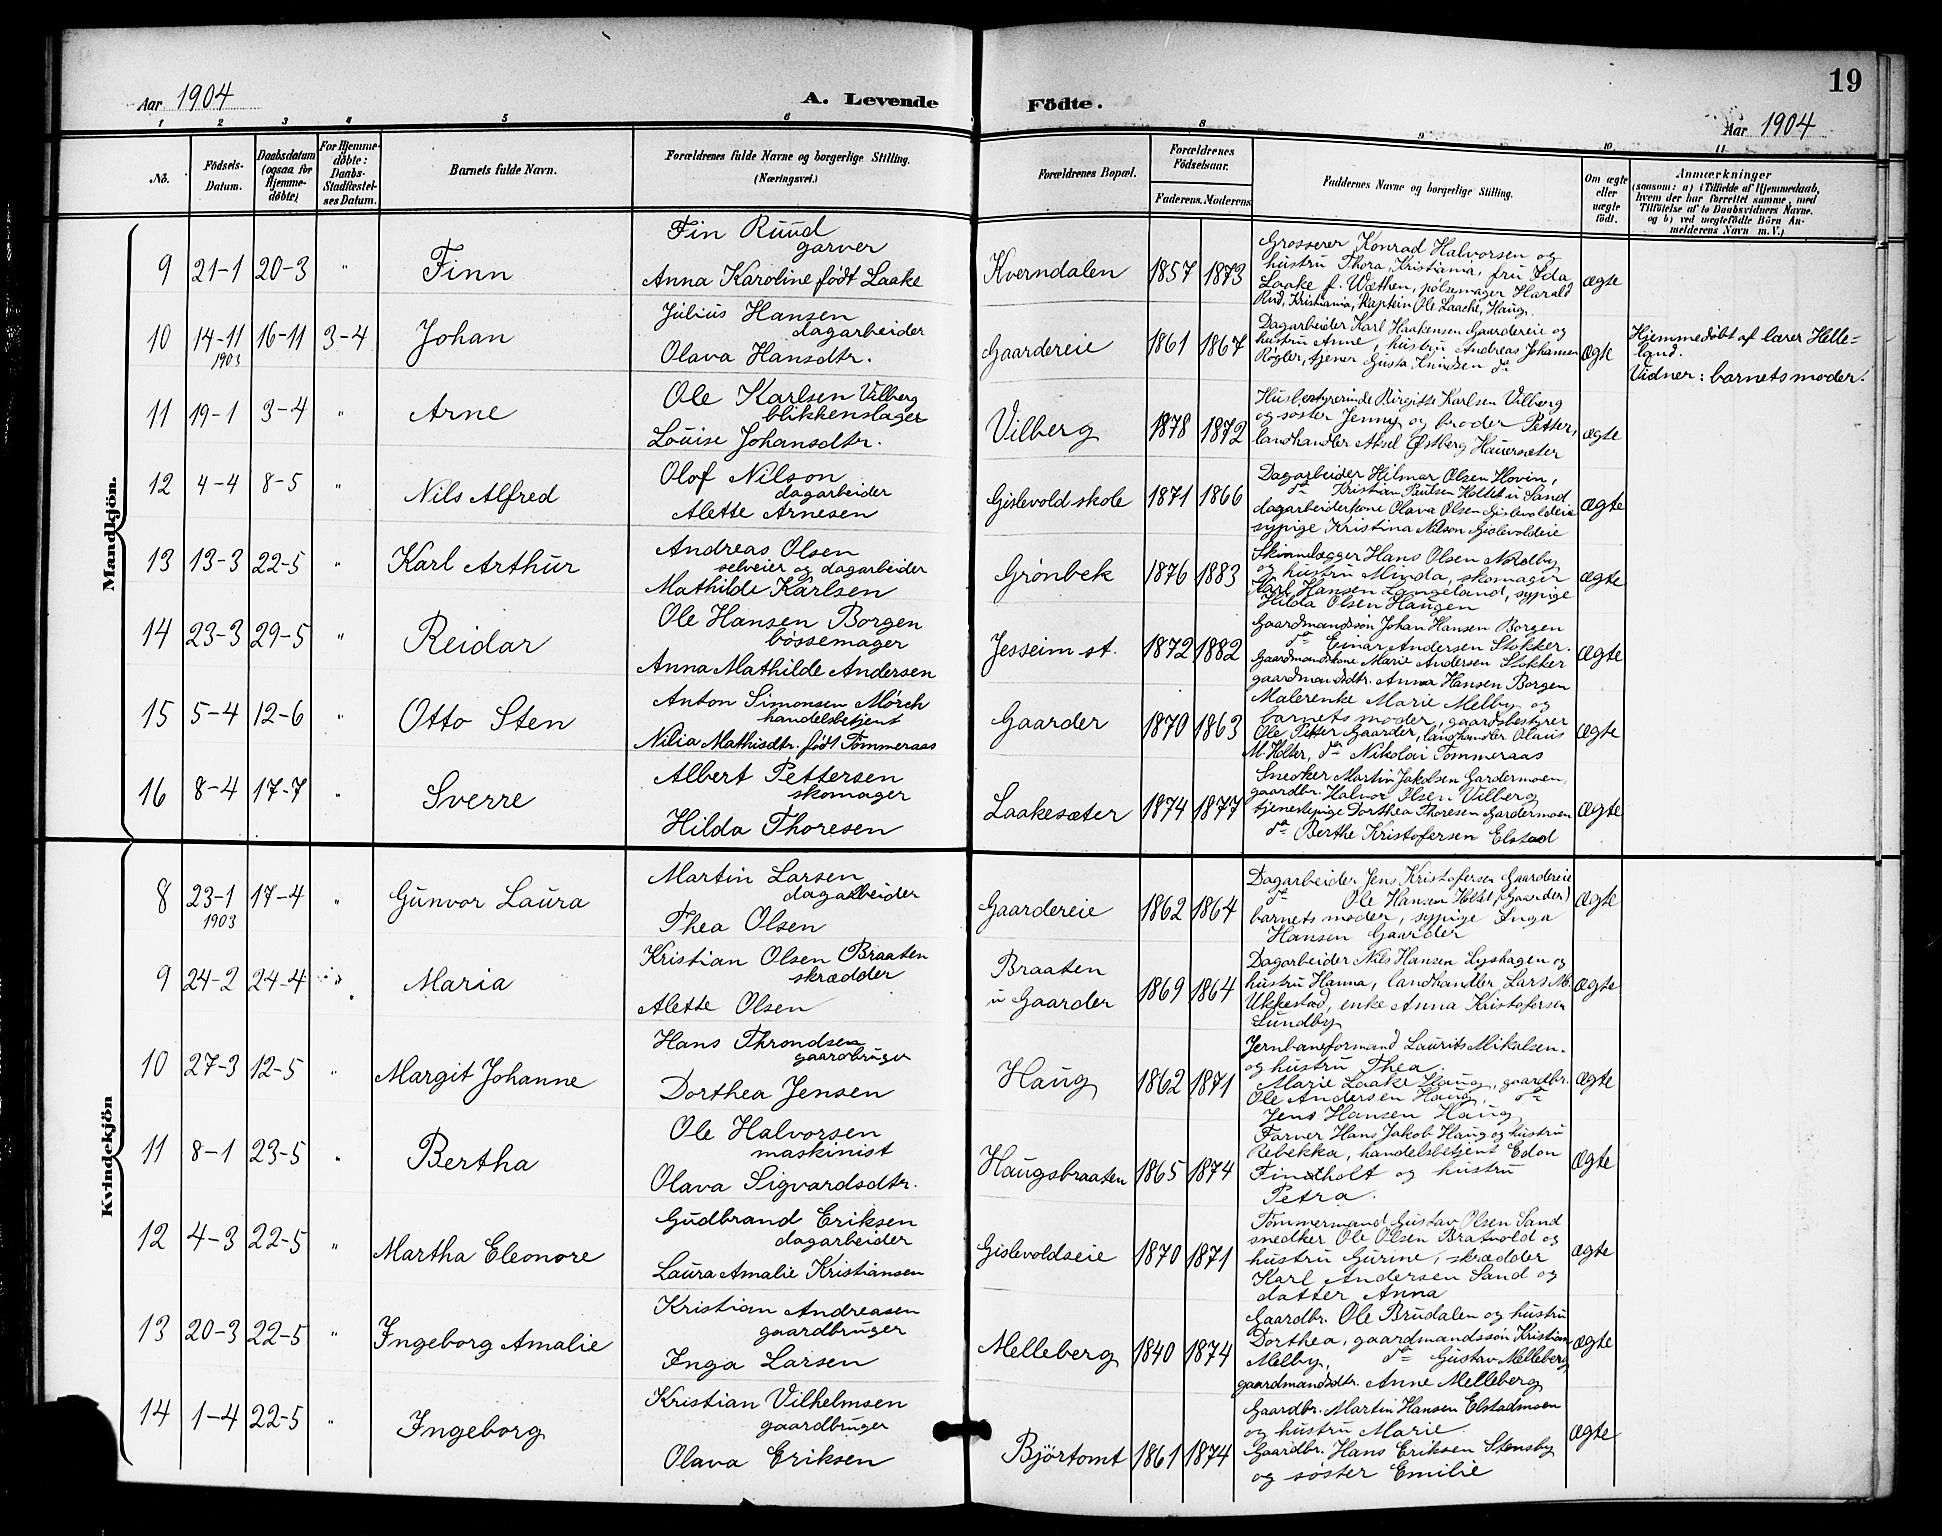 19
Aar 1904
A. Levende
Födte.
Aar 1904
1 2 3 4 5 6 8 9 10 11
No.
Födsels-
Datum.
Daabsdatum
(ogsaa for
Hjemme-
døbte)
For Hjemme-
døbte:
Daabs-
Stadfæstel-
ses Datum.
Barnets fulde Navn.
Forældrenes fulde Navne og borgerlige Stilling.
(Næringsvei.)
Forældrenes Bopæl.
Forældrenes
Fødselsaar.
Faderens. Moderens
Faddernes Navne og borgerlige Stilling.
Om ægte
eller
uægte
födt.
Anmærkninger
(saasom: a) i Tilfælde af Hjemmedaab,
hvem der har forrettet samme, med
Tilföielse af to Daabsvidners Navne.
og b) ved uægtefödte Börn An-
melderens Navn m. V.)
Mandkjön.
9 21-1 20-3 " Finn
Fin Ruud
garver
Anna Karoline født Laake
Kverndalen 1857 1873
Grosserer Konrad Halvorsen og
hustru Thora, Kristiania, fru Ida
Laake f. Wæthen, pølsemager Harald
Rud, Kristiania, Kaptein Ole Laache, Haug.
ægte
10 14-11 16-11 3-4 Johan
1903
Julius Hansen
dagarbeider
Olava Hansdtr.
Gaardereie 1861 1867
Dagarbeider Karl Haakensen Gaardereie og
hustru Anne, hustru Andreas Johansen
Røgler, tjener Gusta Knudsen do
ægte
Hjemmedøbt af lærer Helle-
land.
Vidner: barnets moder.
11 19-1 3-4 " Arne
Ole Karlsen Vilberg
blikkenslager
Louise Johansdtr.
Vilberg 1878 1872
Husbestyrerinde Birgitte Karlsen Vilberg
og søster Jenny og broder Petter,
landhandler Aksel Østberg Hauersæter
ægte
12 4-4 8-5 " Nils Alfred
Olof Nilson
dagarbeider
Alette Arnesen
Gislevold skole 1871 1866
Dagarbeider Hilmar Olsen Hovin,
do Kristian Paulsen Holtet u Sand
dagarbeiderkone Olava Olsen Gislevoldeie
sypige Kristina Nilson Gislevoldeie
ægte
13 13-3 22-5 " Karl Arthur
Andreas Olsen
selveier og dagarbeider
Mathilde Karlsen
Grønbek 1876 1883
Skinnelægger Hans Olsen Nordby
og hustru Minda, skomager
Karl Hansen Langeland, sypige
Hilda Olsen Haugen
ægte
14 23-3 29-5 " Reidar
Ole Hansen Borgen
bøssemager
Anna Mathilde Andersen
Jesseim st. 1872 1882
Gaardmandssøn Johan Hansen Borgen
do Einar Andersen Stokker.
Gaardmandskone Marie Andersen Stokker
gaardmandsdtr. Anna Hansen Borgen
ægte
15 5-4 12-6 " Otto Sten
Anton Simonsen Mørch
handelsbetjent
Nilia Mathisdtr. født Tømmeraas
Gaarder 1870 1863
Malerenke Marie Melby og
barnets moder, gaardsbestyrer
Ole Petter Gaarder, landhandler Olaus
M. Holter, do Nikolai Tømmeraas
ægte
16 8-4 17-7 " Sverre
Albert Pettersen
skomager
Hilda Thoresen
Laakesæter 1874 1877
Snedker Martin Jakobsen Gardermoen,
gaardbr. Halvor Olsen Vilberg
tjenestepige Dorthea Thoresen Gardermoen
do Berthe Kristofersen Elstad
ægte
Kvindekjön
8 23-1 17-4 " Gunvor Laura
1903
Martin Larsen
dagarbeider
Thea Olsen
Gaardereie 1862 1864
Dagarbeider Jens Kristofersen Gaardereie
do Ole Hansen Holst, (Gaarder)
barnets moder, sypige Inga
Hansen Gaarder
ægte
9 24-2 24-4 " Maria
Kristian Olsen Braaten
skrædder
Alette Olsen
Braaten
u Gaarder 1869 1864
Dagarbeider Nils Hansen Lyshagen og
hustru Hanna, landhandler Lars M.
Ukkestad, enke Anna Kristofersen
Lundby
ægte
10 27-3 12-5 " Margit Johanne
Hans Throndsen
gaardbruger
Dorthea Jensen
Haug 1862 1871
Jernbaneformand Laurits Mikalsen
og hustru Thea.
Marie Laake Haug, gaardbr.
Ole Andersen Haug, do
Jens Hansen Haug
ægte
11 8-1 23-5 " Bertha
Ole Halvorsen
maskinist
Olava Sigvardsdtr.
Haugsbraaten 1865 1874
Farver Hans Jakob Haug og hustru
Rebekka, handelsbetjent Edon
Findtholt og hustru
Petra.
ægte
12 4-3 22-5 " Martha Eleonore
Gudbrand Eriksen
dagarbeider
Laura Amalie Kristiansen
Gislevoldseie 1870 1871
Tømmermand Gustav Olsen Sand
snedker Ole Olsen Bratvold og
hustru Gurine, skrædder
Karl Andersen Sand og
datter Anna
ægte
13 20-3 22-5 " Ingeborg Amalie
Kristian Andreasen
gaardbruger
Inga Larsen
Melleberg 1840 1874
Gaardbr. Ole Brudalen og hustru
Dorthea, gaardmandssøn Kristian
Melby, do Gustav Melleberg
gaardmandsdtr. Anne Melleberg
ægte
14 1-4 22-5 " Ingeborg
Kristian Vilhelmsen
gaardbruger
Olava Eriksen
Bjørtomt 1861 1874
Gaardbr. Martin Hansen Elstadmoen
og hustru Marie.
Gaardbr. Hans Eriksen Stensby
og søster Emilie
ægte